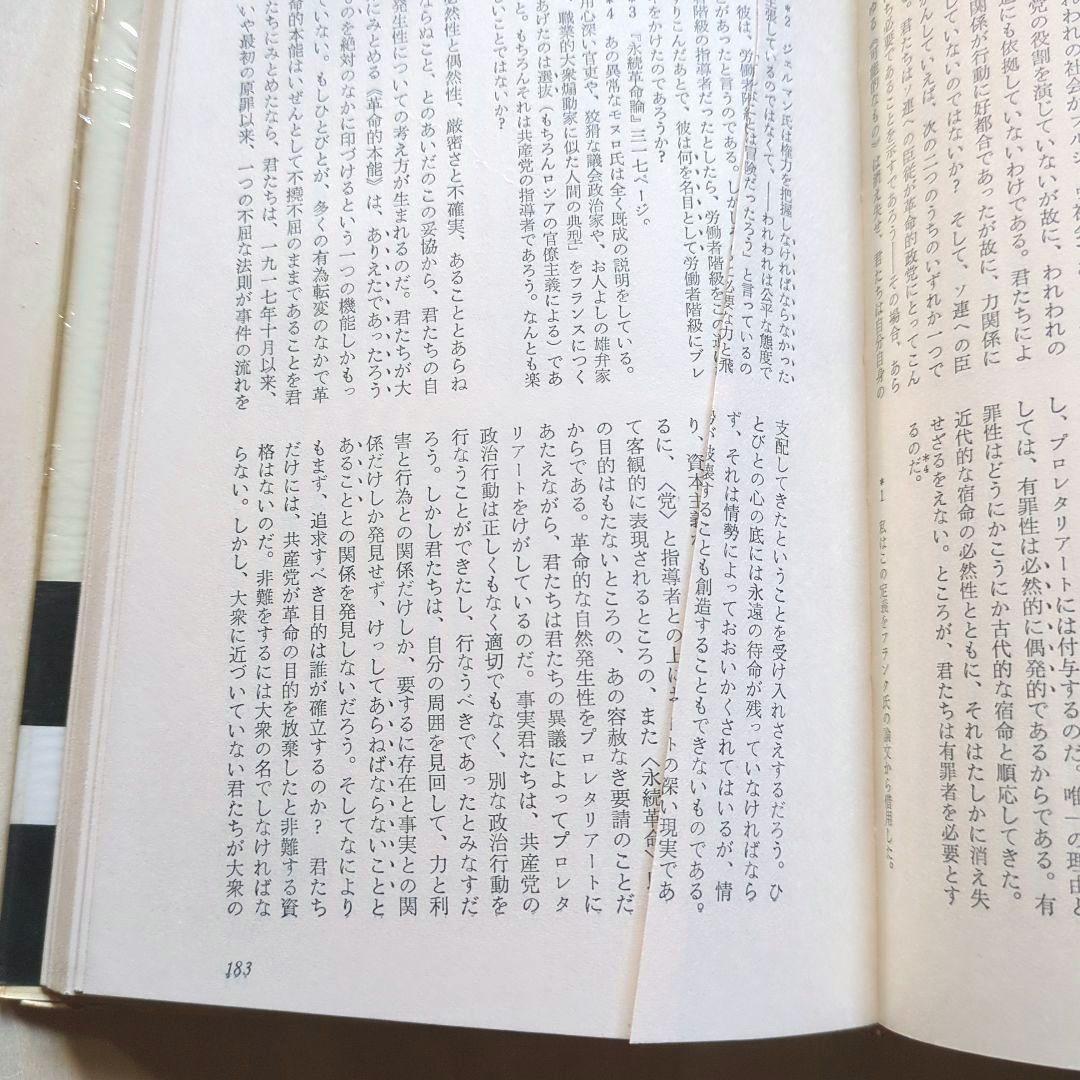 われわれの
党の役割を演じていないが故に、われわれの
道にも依拠していないわけである。君たちによ
関係が行動に好都合であったが故に、力関係に
していないのではないか？　そして、ソ連への臣
がんしていえば、次の二つのうちのいずれか一つで
君たちはソ連への臣従が革命的政党にとってこん
必要であることを示すであろう――その場合、あら
ゆる《可能的なもの》は消え失せ、君たちは自分自身の
し、プロレタリアートには付与するのだ。唯一の理由と
しては、有罪性は必然的に偶発的であるからである。有
罪性はどうにかこうにか古代的な宿命と順応してきた。
近代的な宿命の必然性とともに、それはたしかに消え失
せざるをえない。ところが、君たちは有罪者を必要とす
るのだ。*4
*1　私はこの定義をフランク氏の論文から借用した。
*2　ジェルマン氏は権力を把握しなければならなかった
張しているのではなくて、――われわれは公平な態度で
彼は、労働者階級には冒険だったろう」と言っているの
があったと言うのである。しかし
必要な力と飛
階級の指導者だったとしたら、労働者階級をこの
すこんだあとで、彼は何を名目として労働者階級にブレ
ーキをかけたのであろうか？
*3　『永続革命論』三一七ページ。
*4　あの異常なモヌロ氏は全く既成の説明をしている。
用心深い官吏や、狡猾な議会政治家や、お人よしの雄弁家
、職業的大衆煽動家に似た人間の典型」をフランスにつく
あげたのは選抜（もちろんロシアの官僚主義による）であ
と。もちろんそれは共産党の指導者であろう。なんとも楽
しいことではないか？
必然性と偶然性、厳密さと不確実、あることとあらね
ならぬこと、とのあいだのこの妥協から、君たちの自
発生性についての考え方が生まれるのだ。君たちが大
にみとめる《革命的本能》は、ありえたであったろう
ものを絶対のなかに印づけるという一つの機能しかもっ
ていない。もしひとびとが、多くの有為転変のなかで革
命的本能はいぜんとして不撓不屈のままであることを君
たちにみとめたなら、君たちは、一九一七年十月以来、
いや最初の原罪以来、一つの不屈な法則が事件の流れを
支配してきたということを受け入れさえするだろう。ひ
とびとの心の底には永遠の待命が残っていなければなら
ず、それは情勢によっておおいかくされてはいるが、情
勢が破壊することも創造することもできないものである。
り、資本主義
るに、〈党〉と指導者との上に
トの深い現実であ
て客観的に表現されるところの、また〈永続革命〉
の目的はもたないところの、あの容赦なき要請のことだ
からである。革命的な自然発生性をプロレタリアートに
あたえながら、君たちは君たちの異議によってプロレタ
リアートをけがしているのだ。事実君たちは、共産党の
政治行動は正しくもなく適切でもなく、別な政治行動を
行なうことができたし、行なうべきであったとみなすだ
ろう。しかし君たちは、自分の周囲を見回して、力と利
害と行為との関係だけしか、要するに存在と事実との関
係だけしか発見せず、けっしてあらねばならないことと
あることとの関係を発見しないだろう。そしてなにより
もまず、追求すべき目的は誰が確立するのか？　君たち
だけには、共産党が革命の目的を放棄したと非難する資
格はないのだ。非難をするには大衆の名でしなければな
らない。しかし、大衆に近づいていない君たちが大衆の
183